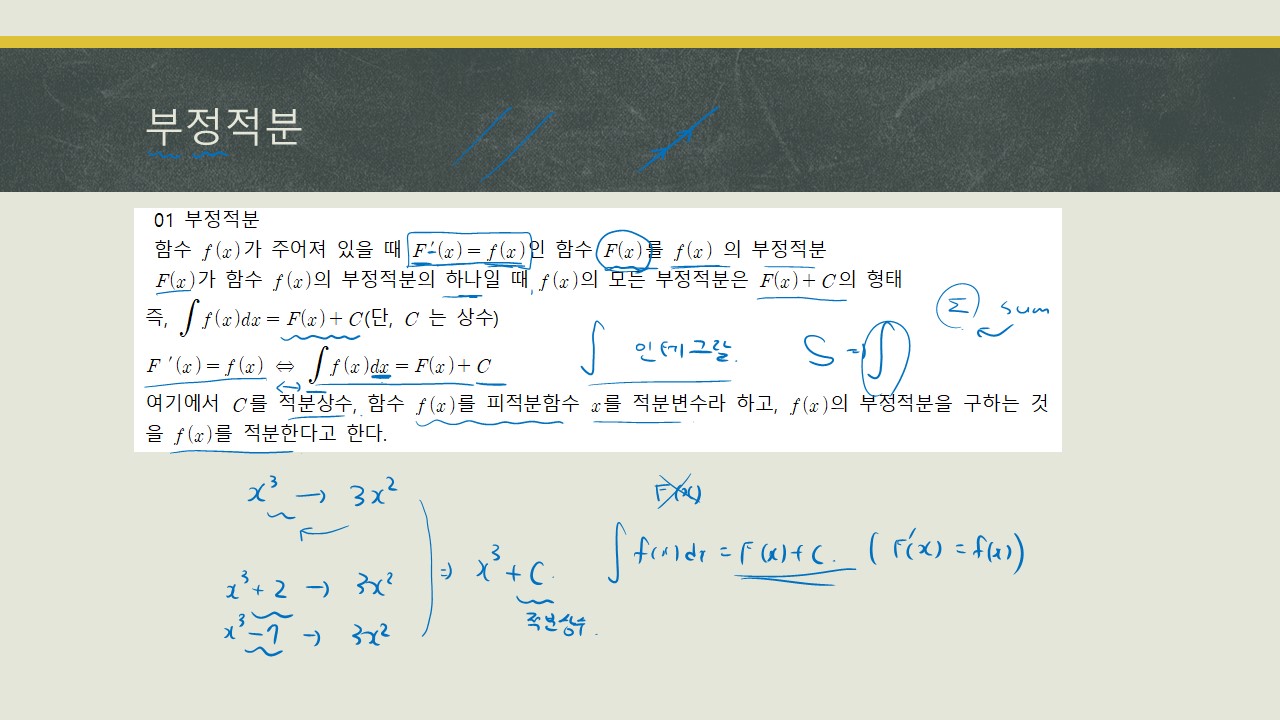 부정적분
01 부정적분
함수 f(x)가 주어져 있을 때 F′(x) = f(x)인 함수 F(x)를 f(x) 의 부정적분
F(x)가 함수 f(x)의 부정적분의 하나일 때, f(x)의 모든 부정적분은 F(x)+C의 형태
즉, ∫f(x)dx = F(x)+C(단, C 는 상수)
Σ sum
F ′(x) = f(x) ⇔ ∫f(x)dx = F(x)+C
∫ 인테그랄. S → ∫
여기에서 C를 적분상수, 함수 f(x)를 피적분함수 x를 적분변수라 하고, f(x)의 부정적분을 구하는 것
을 f(x)를 적분한다고 한다.
x³ → 3x²
F(x)
x³+2 → 3x²
⇒ x³+C.
∫f(x)dx = F(x)+C. (F′(x) = f(x))
x³−7 → 3x²
적분상수.